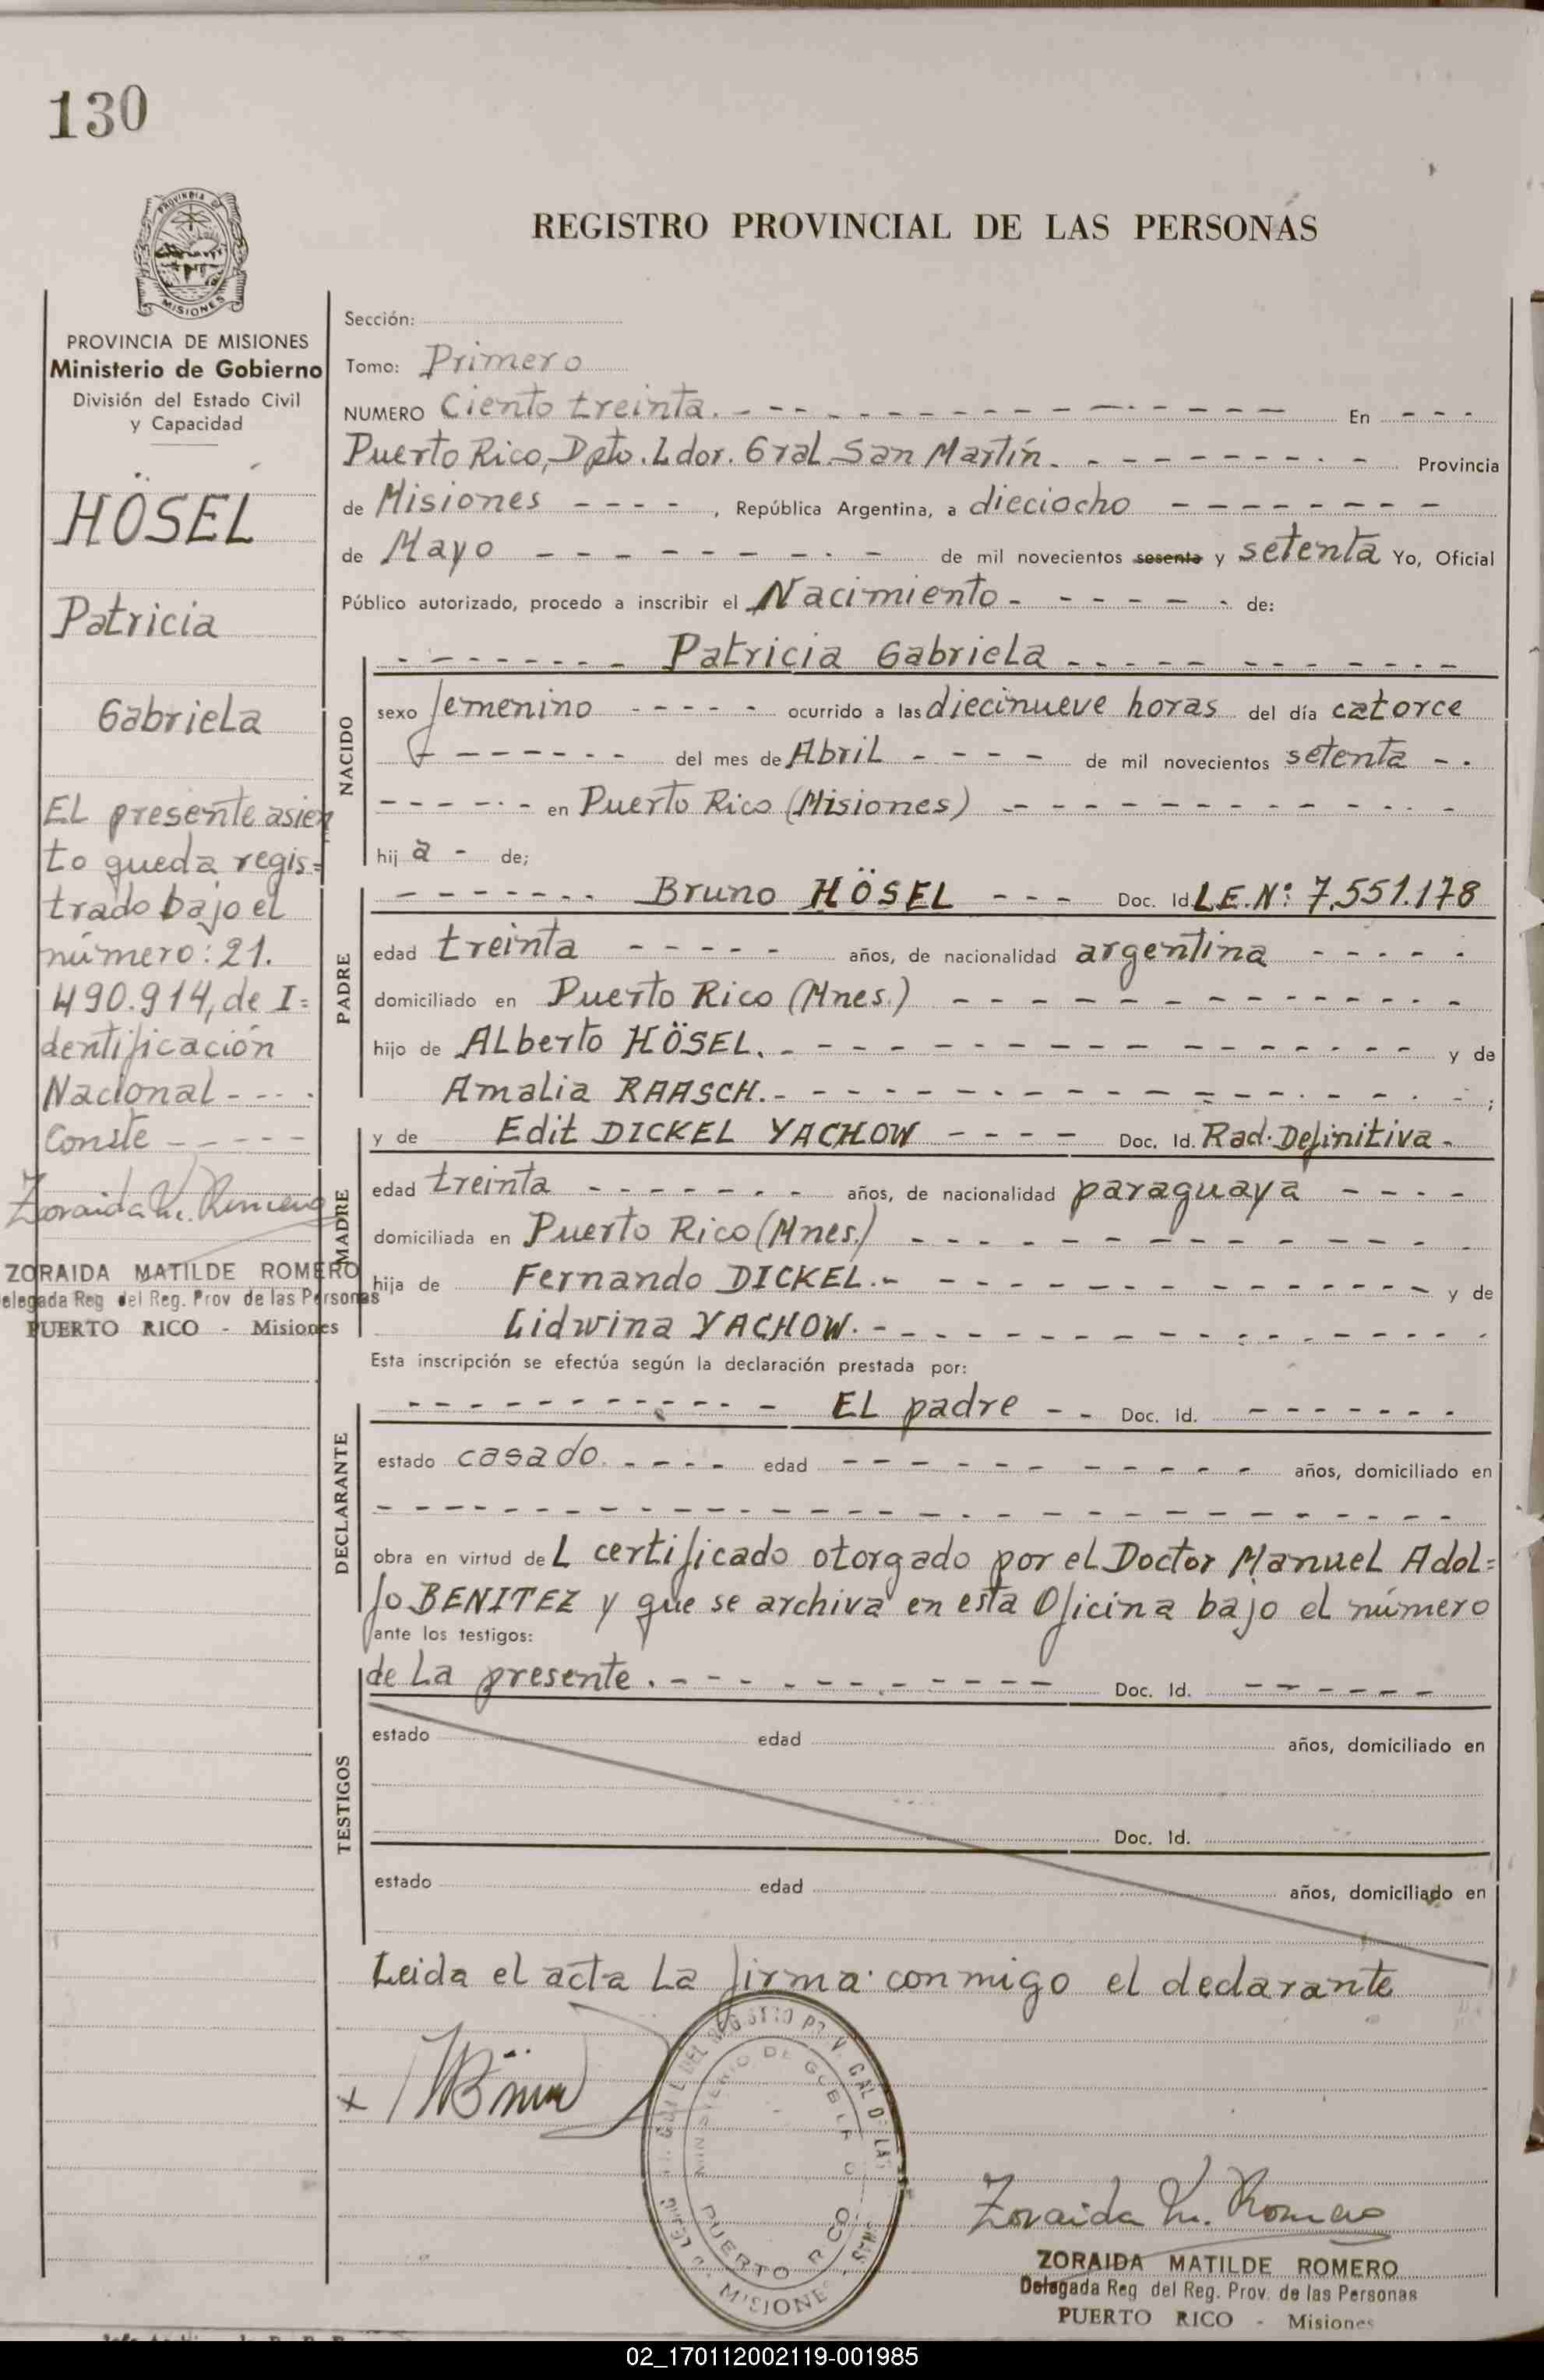 130
PROVINCIA
MISIONES
REGISTRO PROVINCIAL DE LAS PERSONAS
PROVINCIA DE MISIONES
Ministerio de Gobierno
División del Estado Civil
y Capacidad
HÖSEL
Patricia
Gabriela
EL presente asien
to queda regis=
trado bajo el
número: 21.
490.914, de I=
dentificación
Nacional - - - .
Conste - - - - -
Zoraida M. Romero
ZORAIDA MATILDE ROMERO
Delegada Reg del Reg. Prov de las Personas
PUERTO RICO - Misiones
Sección:
Tomo: Primero
NUMERO Ciento treinta. - - - - - - - - En - - -
Puerto Rico, Dpto. Ldor. Gral. San Martín. - - - - - - Provincia
de Misiones - - - - , República Argentina, a dieciocho - - - - - -
de Mayo - - - - - - de mil novecientos sesenta y setenta Yo, Oficial
Público autorizado, procedo a inscribir el Nacimiento - - - - - - de:
NACIDO
- - - - - - - Patricia Gabriela - - - - - - - -
sexo femenino - - - - - ocurrido a las diecinueve horas del día catorce
- - - - - - del mes de Abril - - - - de mil novecientos setenta - .
- - - - - - en Puerto Rico (Misiones) - - - - - - - -
hij a - de;
PADRE
- - - - - - - Bruno HÖSEL - - - Doc. Id. L.E.Nº: 7.551.178
edad treinta - - - - - años, de nacionalidad argentina - - - - -
domiciliado en Puerto Rico (Mnes.) - - - - - - - -
hijo de ALberto HÖSEL. - - - - - - - - y de
Amalia RAASCH. - - - - - - - - ;
MADRE
y de Edit DICKEL YACHOW - - - - Doc. Id. Rad. Definitiva -
edad treinta - - - - - - - años, de nacionalidad paraguaya - - - -
domiciliada en Puerto Rico (Mnes.) - - - - - - - -
hija de Fernando DICKEL. - - - - - - - - y de
Lidwina YACHOW. - - - - - - - -
Esta inscripción se efectúa según la declaración prestada por:
DECLARANTE
- - - - - - - - EL padre - - Doc. Id. - - - - - - -
estado casado. - - - - edad - - - - - - - - años, domiciliado en
- - - - - - - - - - - -
obra en virtud de L certificado otorgado por el Doctor Manuel Adol=
fo BENITEZ y que se archiva en esta Oficina bajo el número
ante los testigos:
TESTIGOS
de La presente. - - - - - - - - Doc. Id. - - - - - -
estado edad años, domiciliado en
Doc. Id.
estado edad años, domiciliado en
Leida el acta La firma conmigo el declarante
x
MINISTERIO DE GOBIERNO
PUERTO RICO
MISIONES
Zoraida M. Romero
ZORAIDA MATILDE ROMERO
Delegada Reg del Reg. Prov. de las Personas
PUERTO RICO - Misiones
02_170112002119-001985